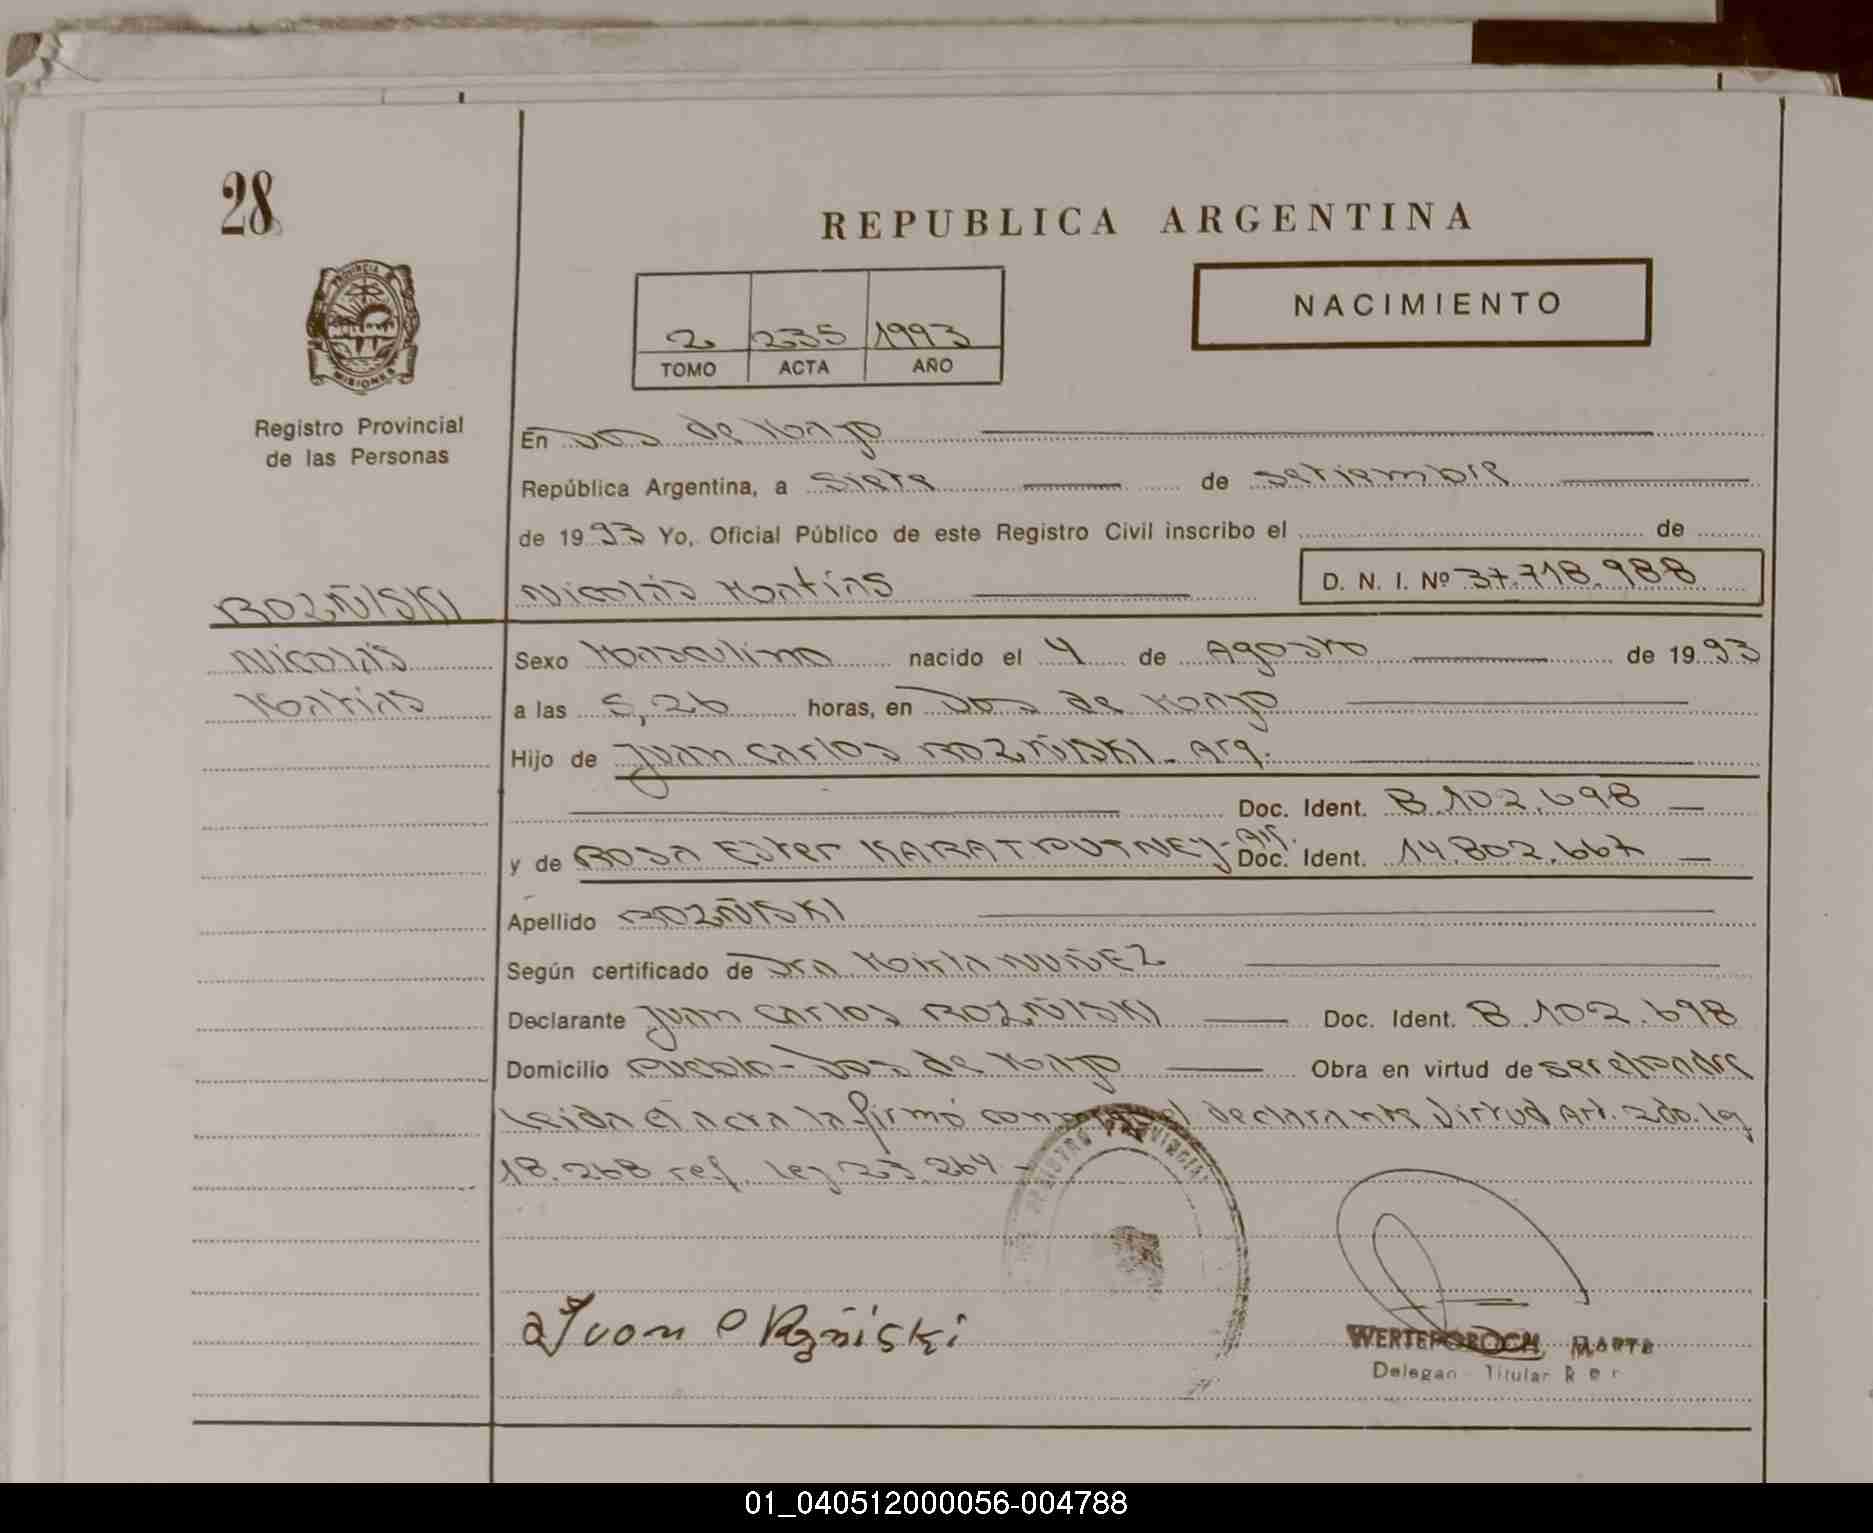 28
REPUBLICA ARGENTINA
NACIMIENTO
2 235 1993
TOMO ACTA AÑO
PROVINCIA
MISIONES
Registro Provincial
de las Personas
En Dos de Mayo
República Argentina, a Siete de setiembre
de 1993 Yo, Oficial Público de este Registro Civil inscribo el de
ROZÑISKI
Nicolás Matías D. N. I. Nº 37.718.988
Nicolás
Matías
Sexo Masculino nacido el 4 de Agosto de 1993
a las 5,26 horas, en Dos de Mayo
Hijo de Juan Carlos ROZÑISKI - Arg.
Doc. Ident. 8.102.698
y de Rosa Ester - Arg. Doc. Ident. 14.802.667
Apellido ROZÑISKI
Según certificado de Dra Mirta NUÑEZ
Declarante Juan Carlos ROZÑISKI Doc. Ident. 8.102.698
Domicilio Pueblo - Dos de Mayo Obra en virtud de ser el padre
Leida el acta la firmó el declarante Virtud Art. 2do. Ley
18.268 ref. Ley 23.264 -
REGISTRO PROVINCIAL
Juan C Rozñiski
MARTA
Titular
01_040512000056-004788